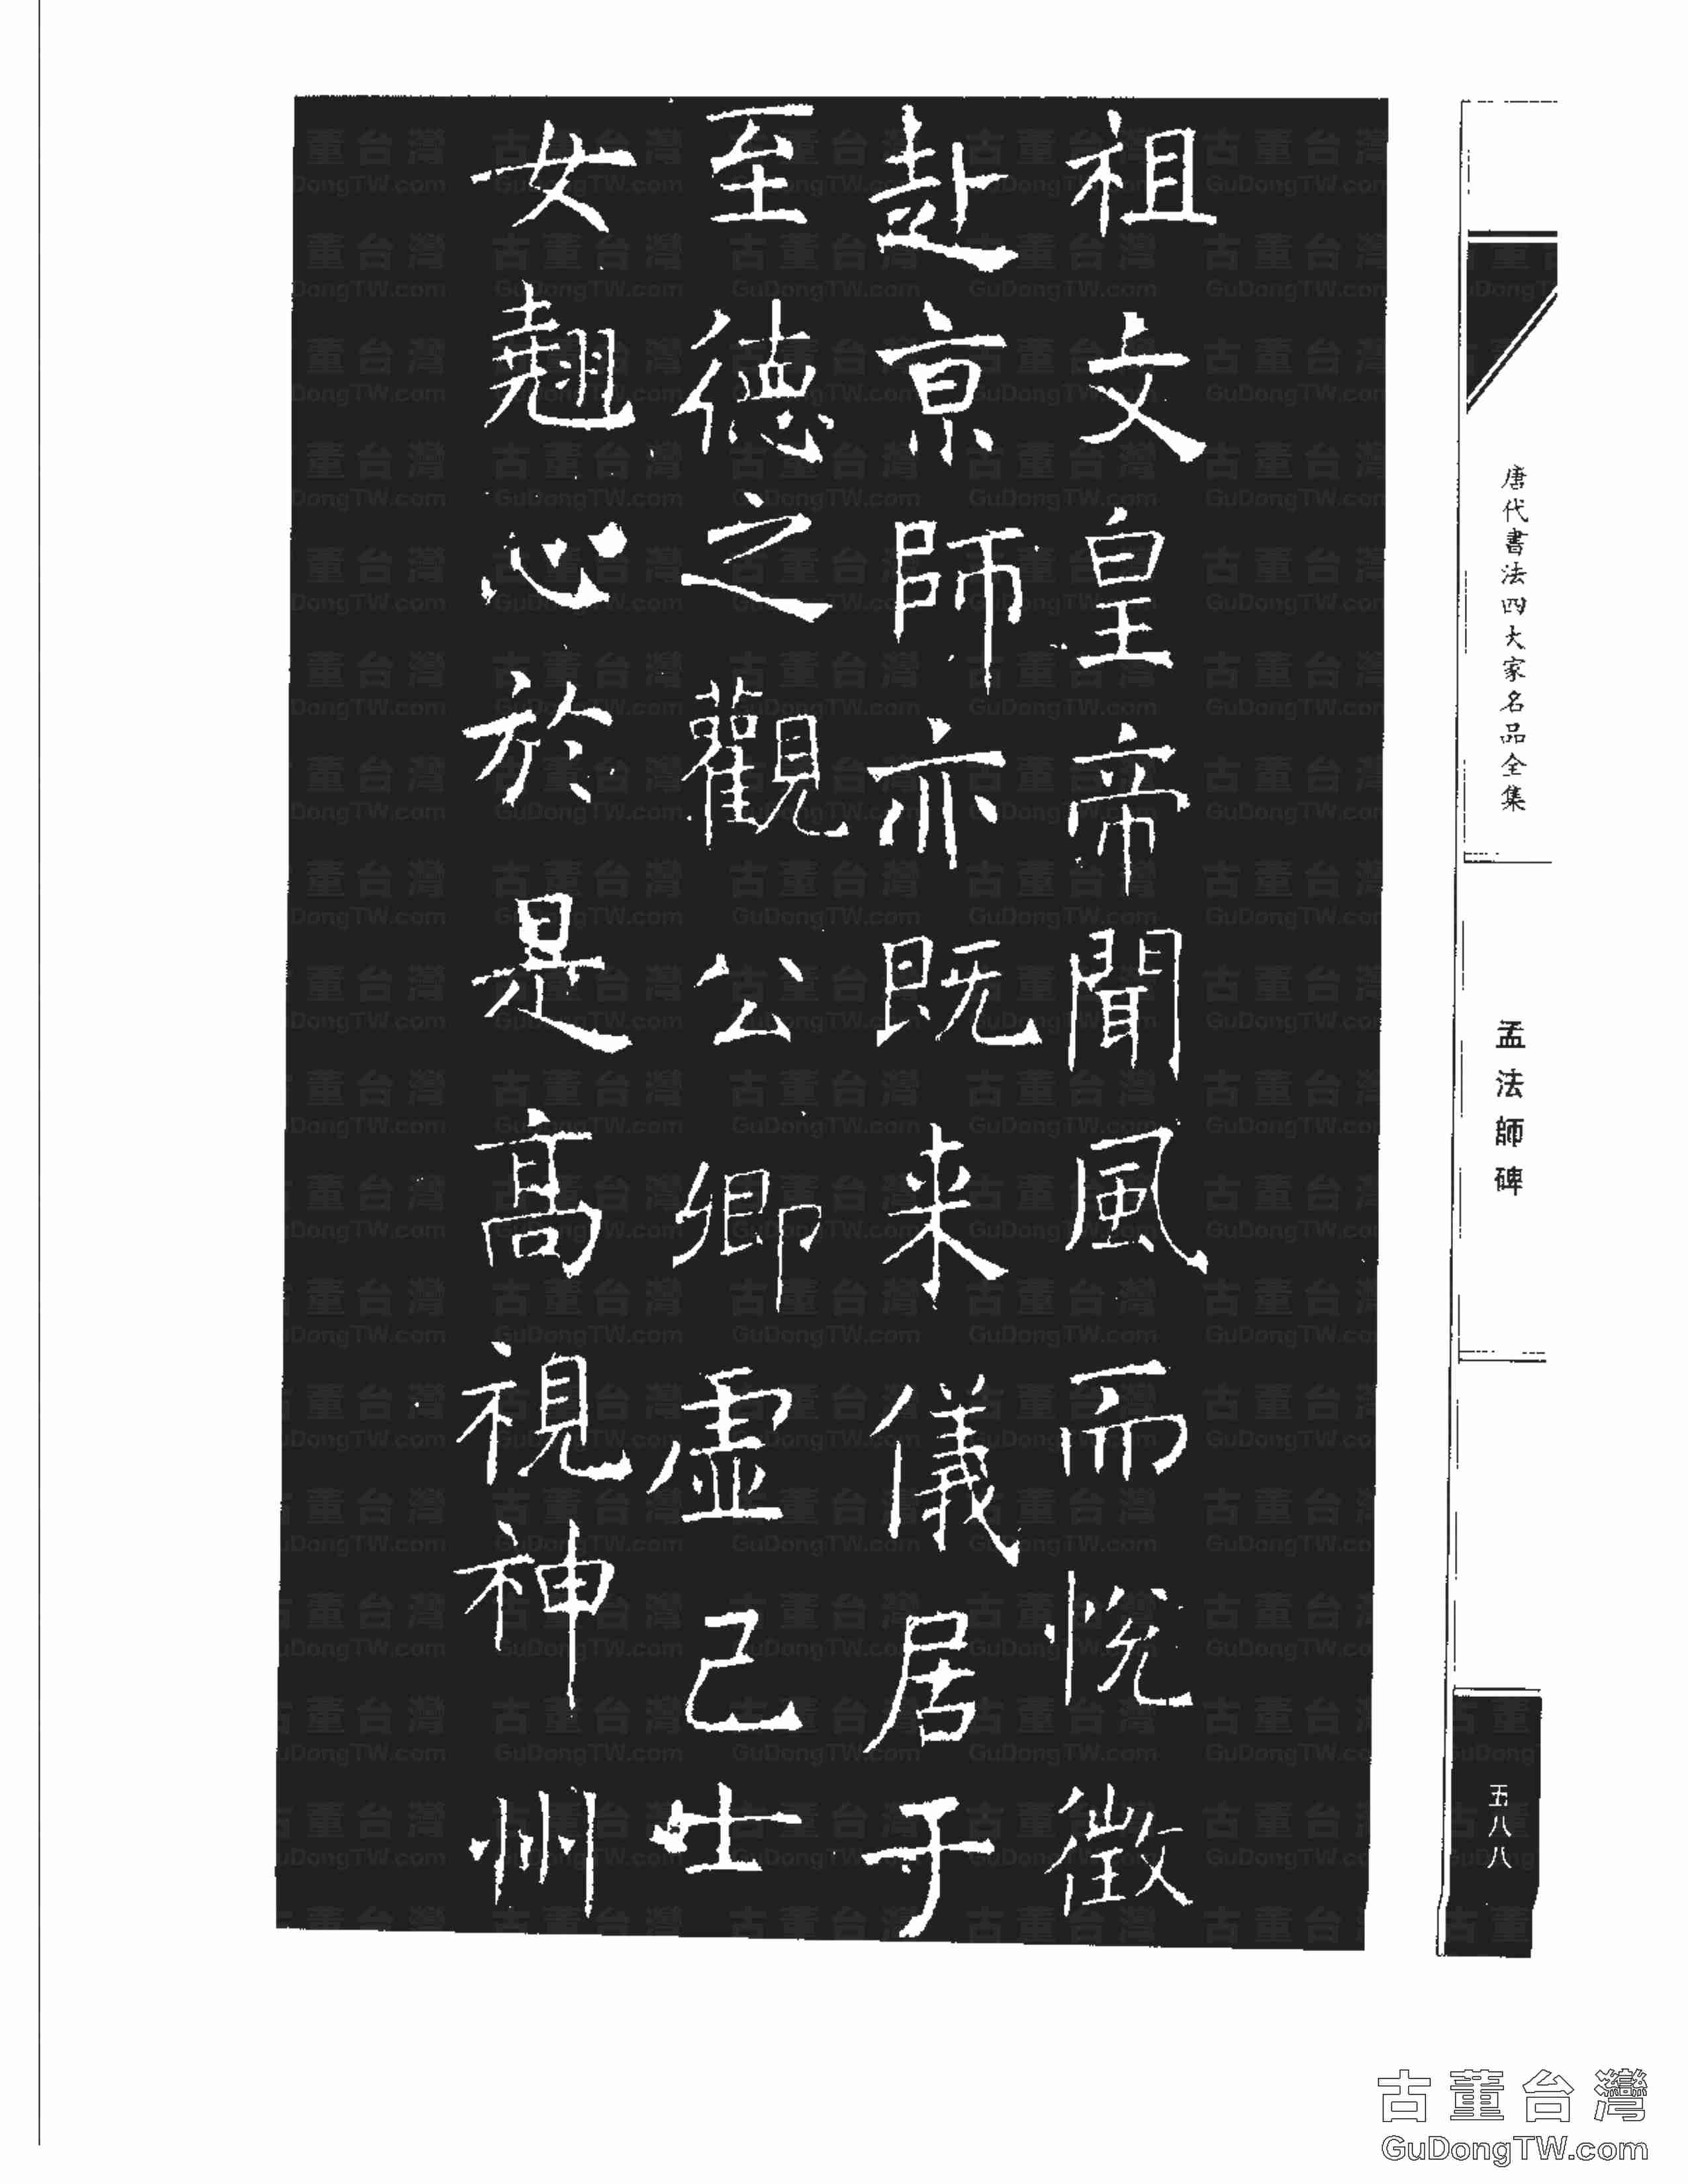 唐代書法四大家名品全集
孟法師碑
五八八
祖文皇帝聞風而悅徵
赴京師亦既来儀居于
至德之觀公卿虛己士
女翹心於是高視神州
古董台灣
GuDongTW.com